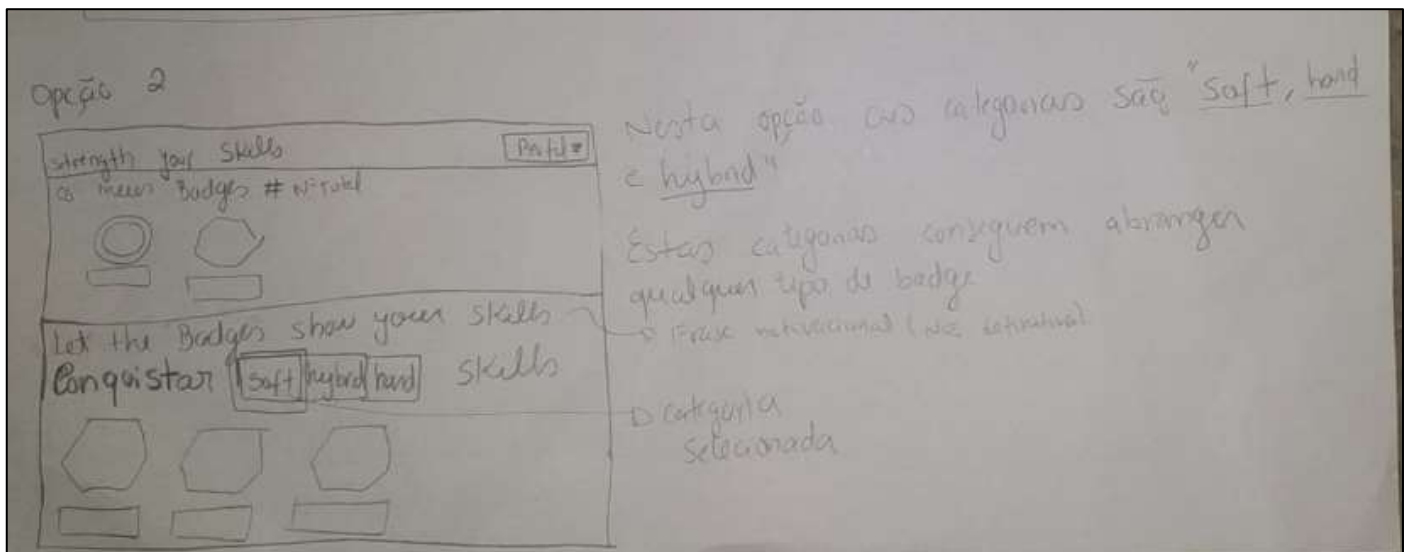 Opção 2
strength your Skills
Perfil
Os meus Badges # Nº Total
Let the Badges show your skills
Conquistar soft hybrid hard skills
Nesta opção as categorias são "Soft, hard
e hybrid"
Estas categorias conseguem abranger
qualquer tipo de badge
Frase motivacional
categoria
selecionada